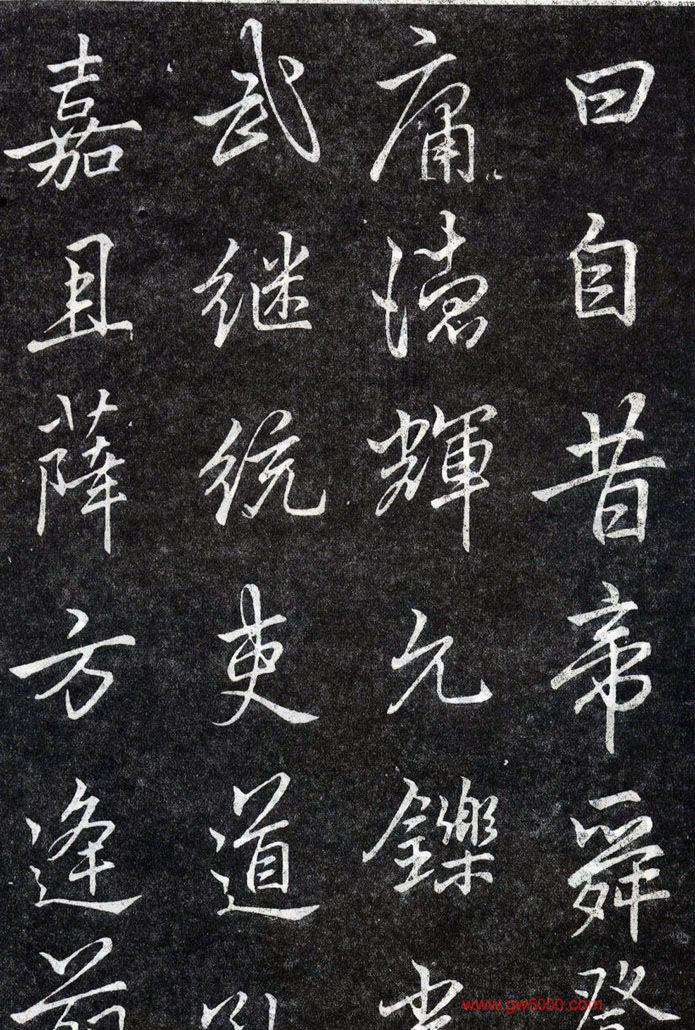 曰自昔帝舜登
庸德輝允鑠光
武继统吏道
嘉且薛方逢前
www.gw5000.com